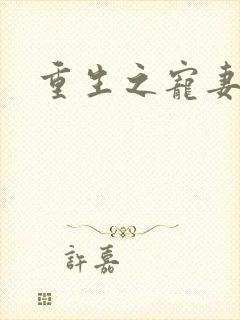 重生之寵妻
許嘉